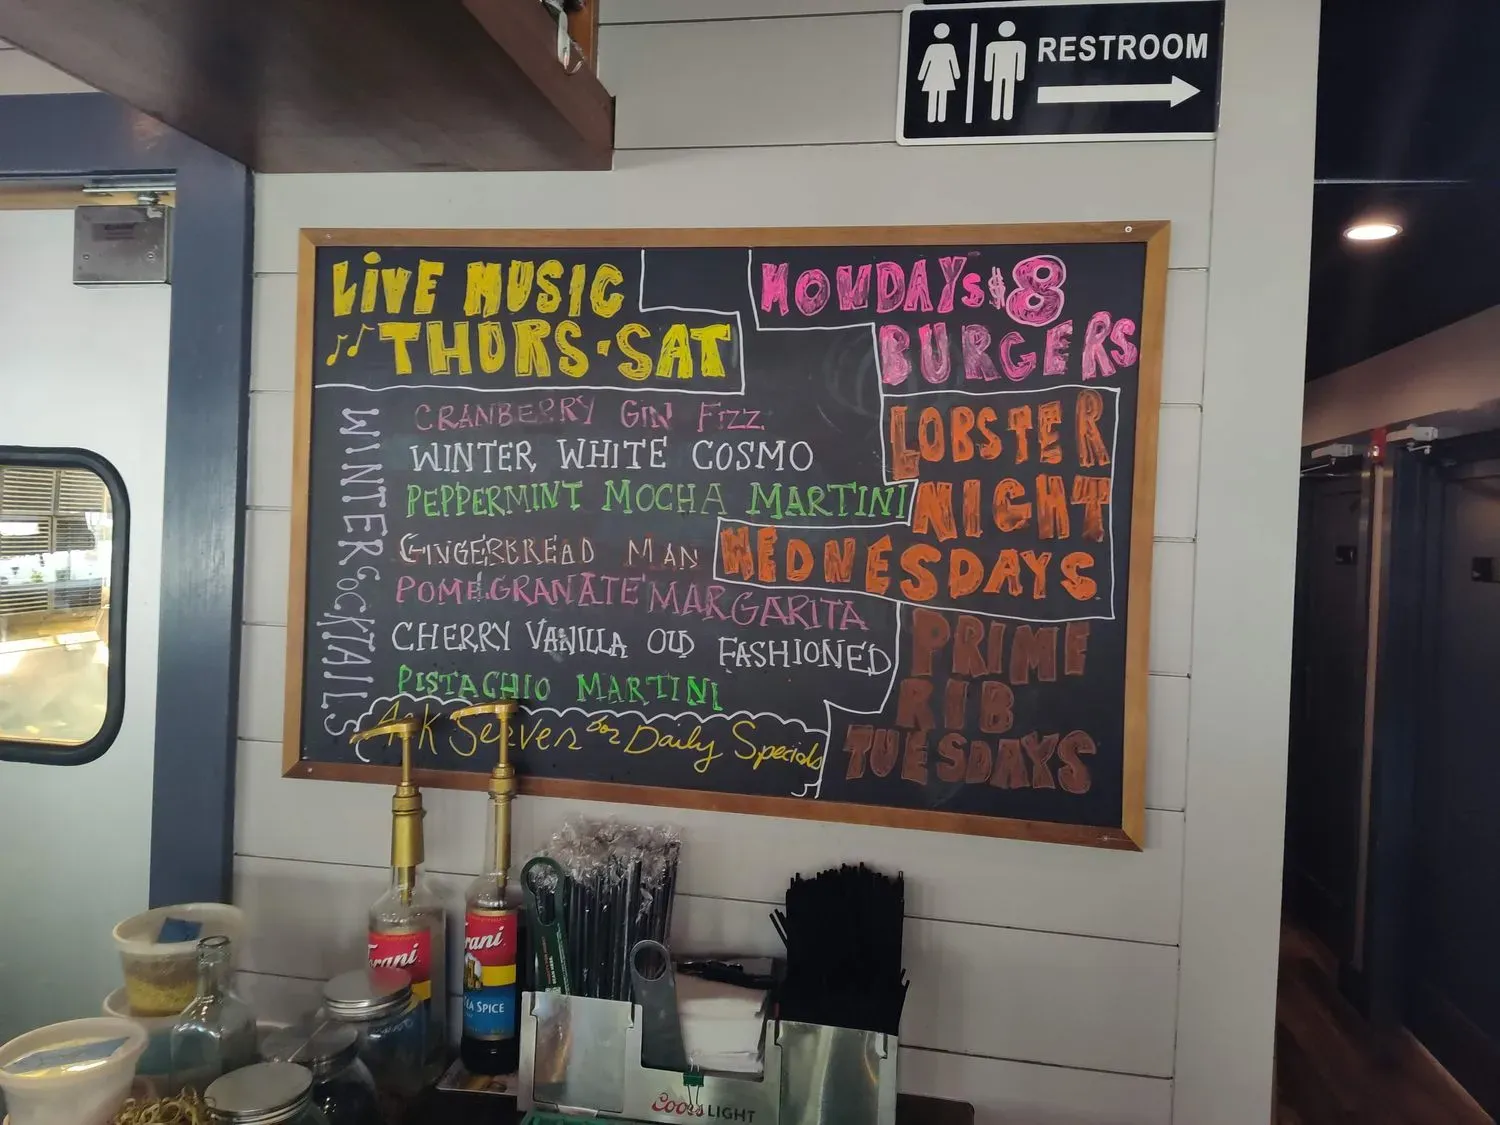 RESTROOM
LIVE MUSIC
THURS·SAT
MONDAYS $8
BURGERS
LOBSTER
NIGHT
WEDNESDAYS
PRIME
RIB
TUESDAYS
WINTER COCKTAILS
CRANBERRY GIN FIZZ
WINTER WHITE COSMO
PEPPERMINT MOCHA MARTINI
GINGERBREAD MAN
POMEGRANATE MARGARITA
CHERRY VANILLA OLD FASHIONED
PISTACHIO MARTINI
Ask Server for Daily Specials
Torani
rani
SPICE
Coors LIGHT